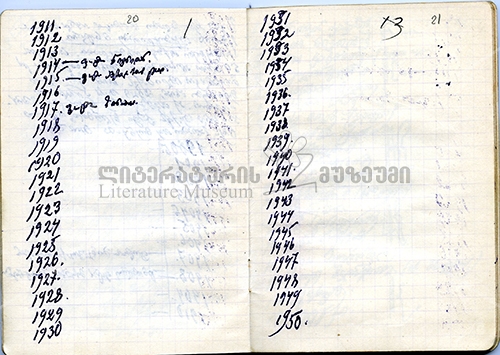 20
1
1911.
1912
1913
1914 —
1915 —
1916
1917.
1918
1919
1920
1921
1922
1923
1924
1925
1926.
1927.
1928.
1929
1930
21
×3
1931
1932
1933
1934
1935
1936.
1937
1938.
1939.
1940
1941.
1942
1943
1944
1945
1946
1947
1948
1949
1950.
ლიტერატურის მუზეუმი
Literature Museum